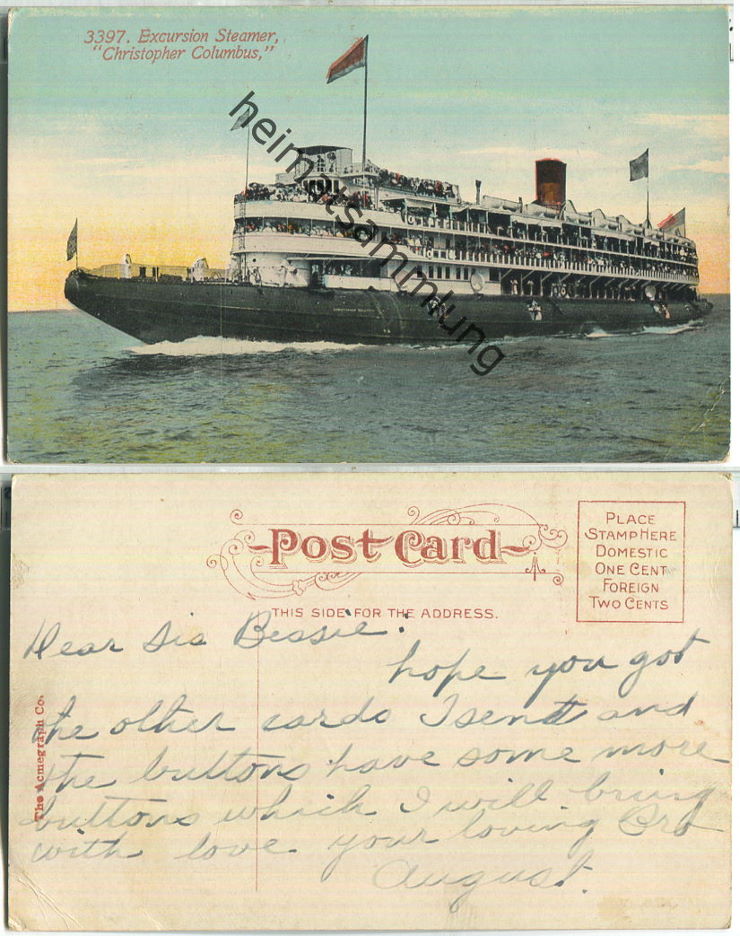 3397. Excursion Steamer,
"Christopher Columbus,"
heimatsammlung
Post Card
THIS SIDE FOR THE ADDRESS.
PLACE
STAMP HERE
DOMESTIC
ONE CENT
FOREIGN
TWO CENTS
The Acmegraph Co.
Dear Sis Bessie.
hope you got
the other cards I send and
the buttons have some more
buttons which I will bring
with love your loving Bro
August.